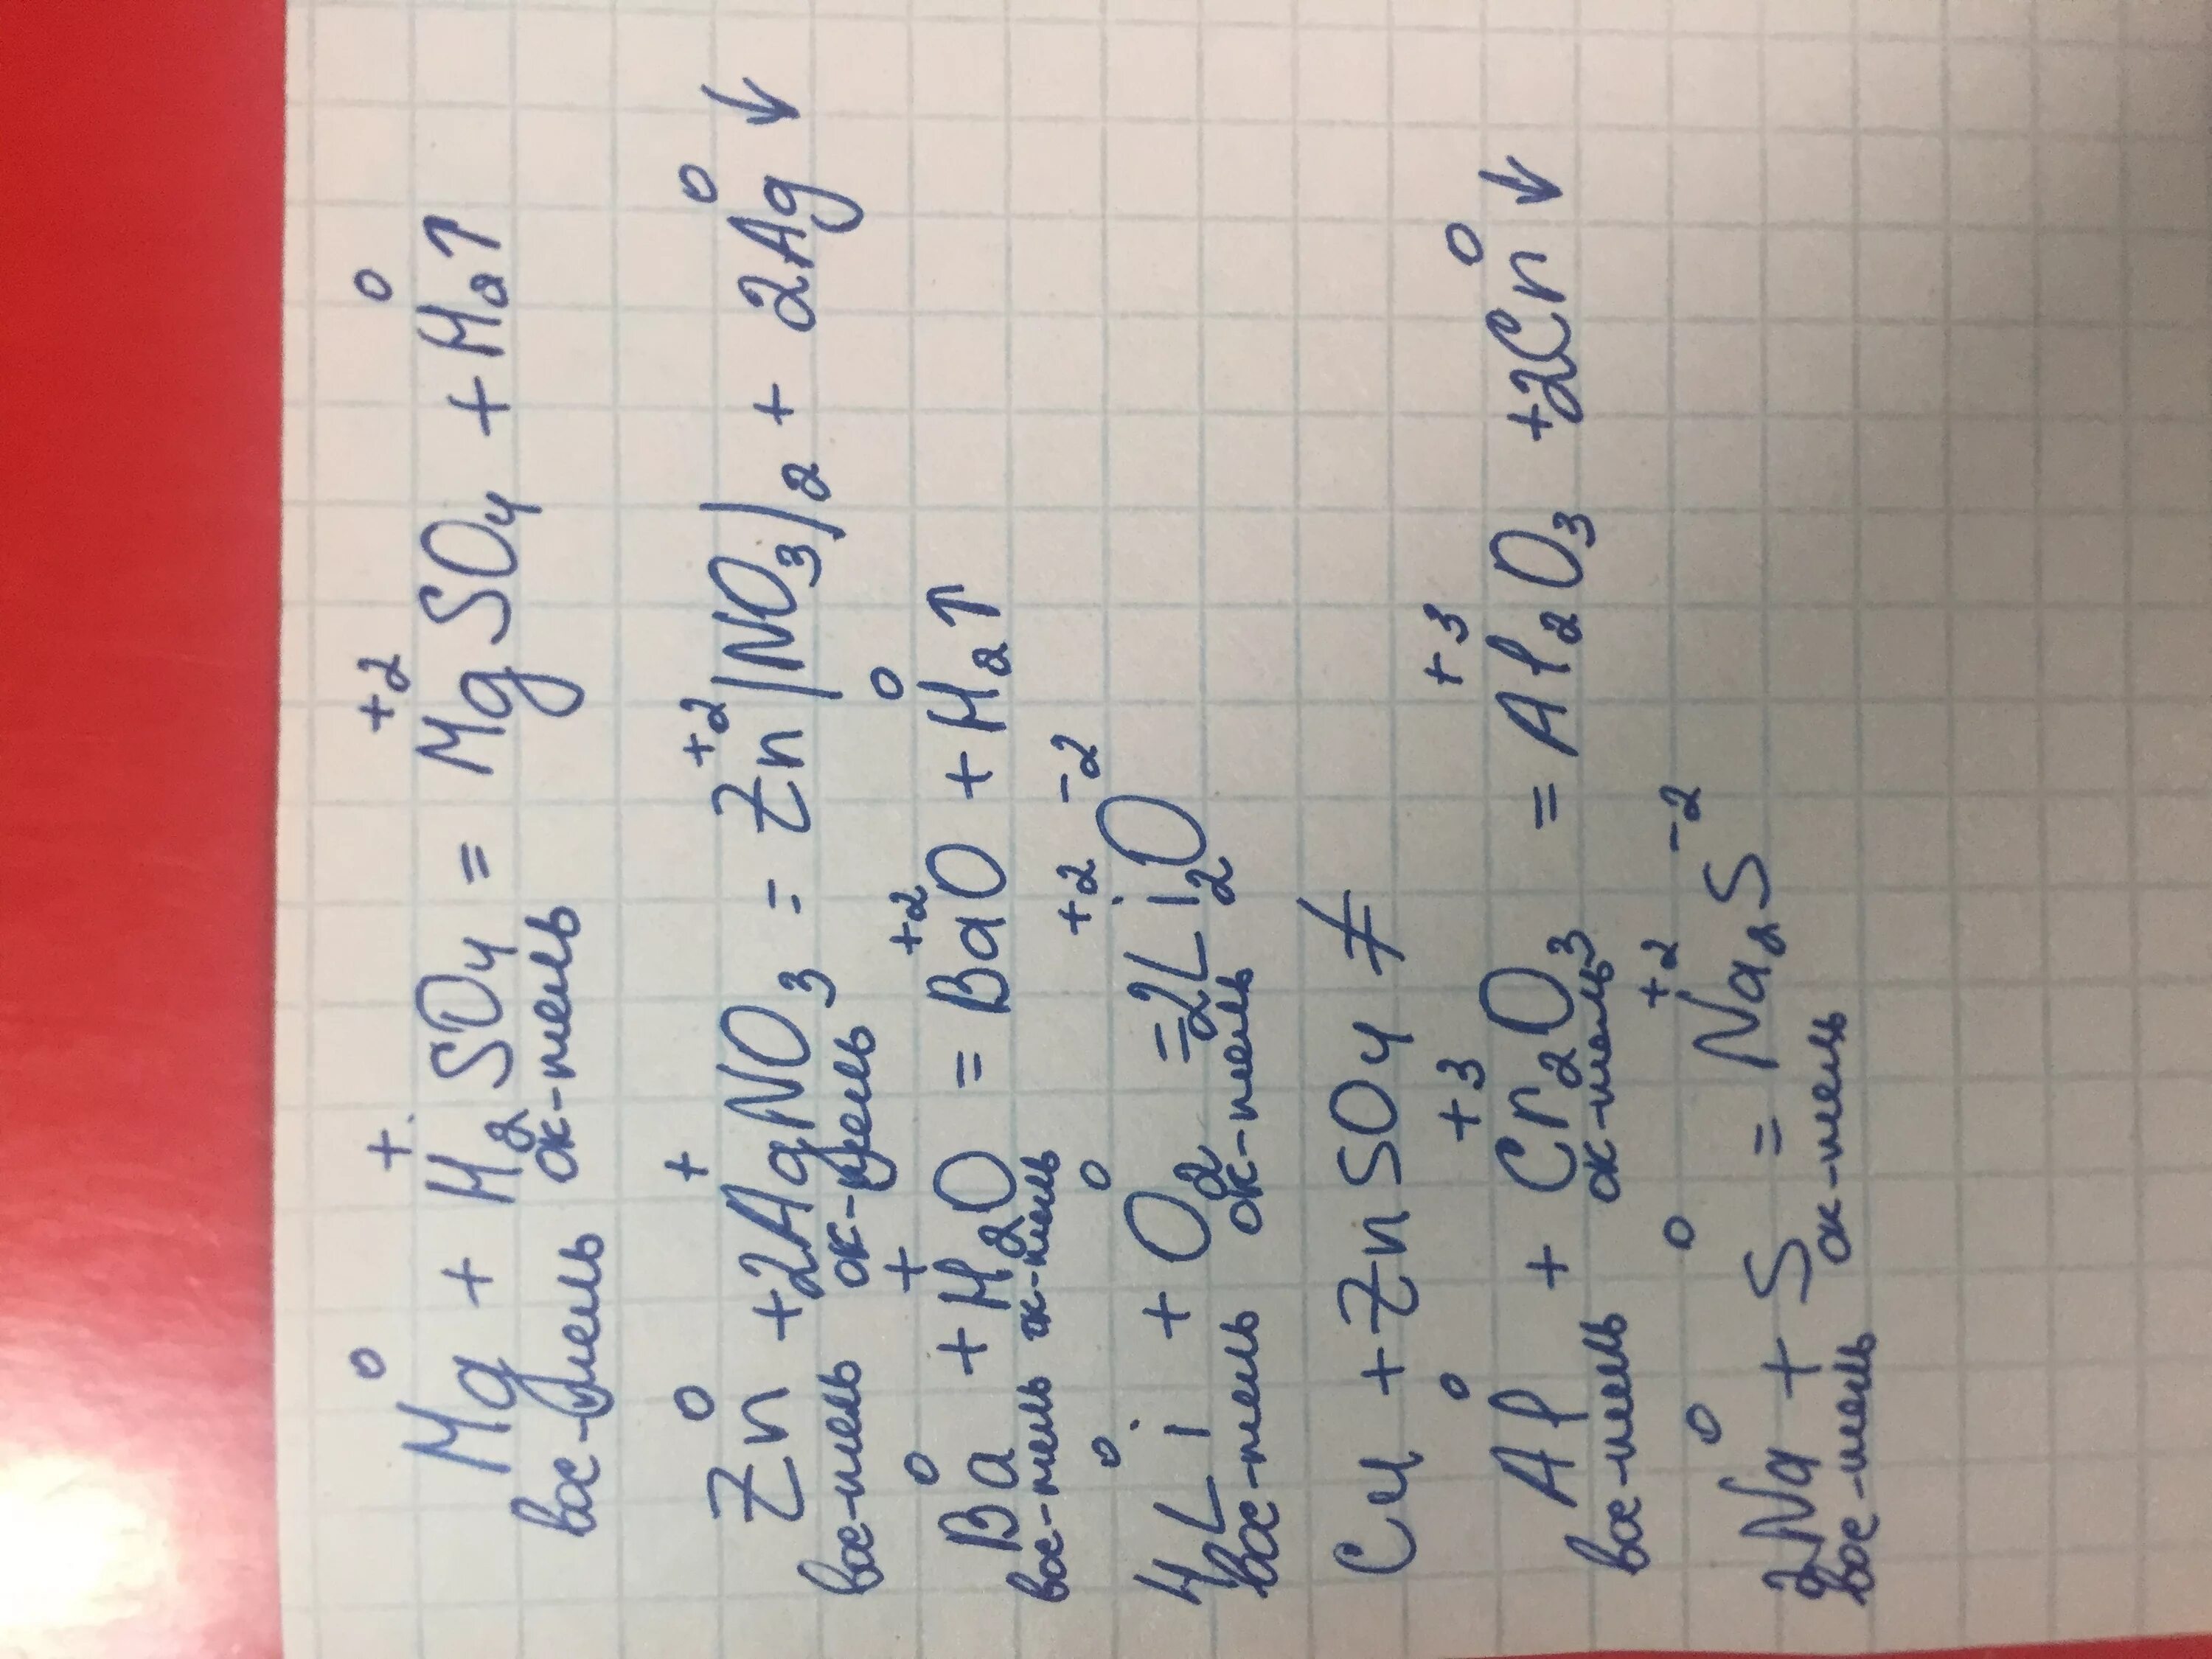 0 + +2 0
Mg + H2SO4 = MgSO4 + H2↑
вос-тель ок-тель
0 + +2 0
Zn + 2AgNO3 = Zn(NO3)2 + 2Ag↓
вос-тель ок-тель
0 + +2 0
Ba + H2O = BaO + H2↑
вос-тель ок-тель
0 0 +2 -2
4Li + O2 = 2Li2O
вос-тель ок-тель
Cu + ZnSO4 ≠
0 +3 +3 0
Al + Cr2O3 = Al2O3 + 2Cr↓
вос-тель ок-тель
0 0 +2 -2
2Na + S = Na2S
вос-тель ок-тель